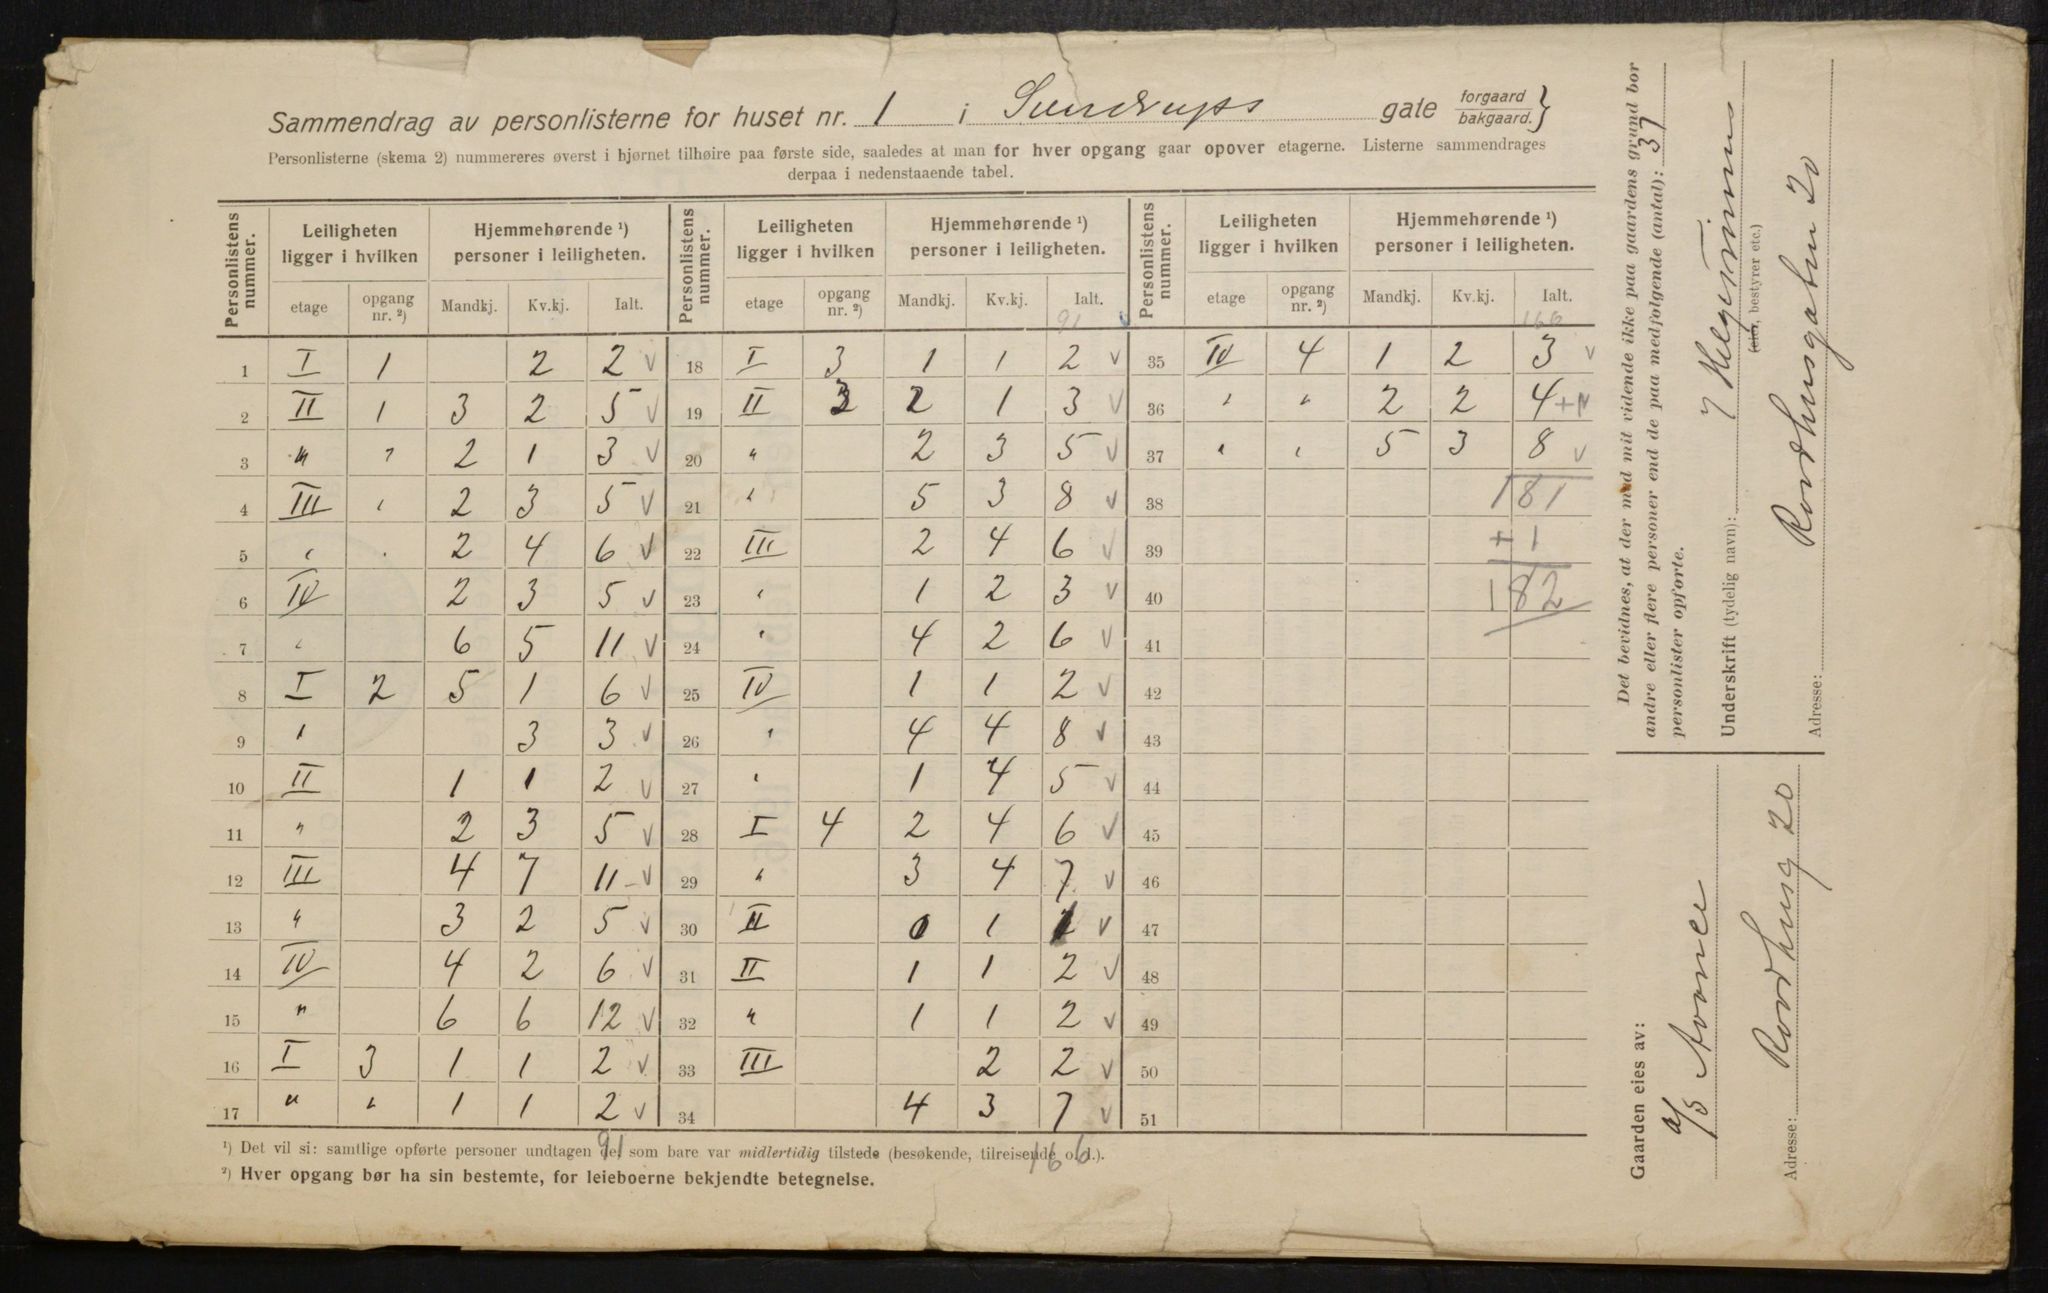 Sammendrag av personlisterne for huset nr. 1 i Sundrups gate forgaard bakgaard. }
Personlisterne (skema 2) nummereres øverst i hjørnet tilhøire paa første side, saaledes at man for hver opgang gaar opover etagerne. Listerne sammendrages
derpaa i nedenstaaende tabel.
Personlistens nummer. Leiligheten ligger i hvilken Hjemmehørende ¹) personer i leiligheten. Personlistens nummer. Leiligheten ligger i hvilken Hjemmehørende ¹) personer i leiligheten. Personlistens nummer. Leiligheten ligger i hvilken Hjemmehørende ¹) personer i leiligheten.
etage opgang nr. ²) Mandkj. Kv.kj. Ialt. etage opgang nr. ²) Mandkj. Kv.kj. Ialt. etage opgang nr. ²) Mandkj. Kv.kj. Ialt.
91 v 166
1 I 1 2 2 v 18 I 3 1 1 2 v 35 IV 4 1 2 3 v
2 II 1 3 2 5 v 19 II 3 2 1 3 v 36 " " 2 2 4 +1 v
3 " " 2 1 3 v 20 " 2 3 5 v 37 " " 5 3 8 v
4 III " 2 3 5 v 21 " 5 3 8 v 38 181
5 " " 2 4 6 v 22 III 2 4 6 v 39 + 1
6 IV 2 3 5 v 23 " 1 2 3 v 40 182
7 " 6 5 11 v 24 " 4 2 6 v 41
8 I 2 5 1 6 v 25 IV 1 1 2 v 42
9 " 3 3 v 26 " 4 4 8 v 43
10 II 1 1 2 v 27 " 1 4 5 v 44
11 " 2 3 5 v 28 I 4 2 4 6 v 45
12 III 4 7 11 v 29 " 3 4 7 v 46
13 " 3 2 5 v 30 II 0 1 1 v 47
14 IV 4 2 6 v 31 II 1 1 2 v 48
15 " 6 6 12 v 32 " 1 1 2 v 49
16 I 3 1 1 2 v 33 III 2 2 v 50
17 " " 1 1 2 v 34 4 3 7 v 51
91 166
¹) Det vil si: samtlige opførte personer undtagen de, som bare var midlertidig tilstede (besøkende, tilreisende o. l.).
²) Hver opgang bør ha sin bestemte, for leieboerne bekjendte betegnelse.
Det bevidnes, at der med mit vidende ikke paa gaardens grund bor
andre eller flere personer end de paa medfølgende (antal): 37
personlister opførte.
Underskrift (tydelig navn):
(eier, bestyrer etc.)
Adresse: Raadhusgaten 20
Gaarden eies av:
A/S
Adresse: Raadhusg 20